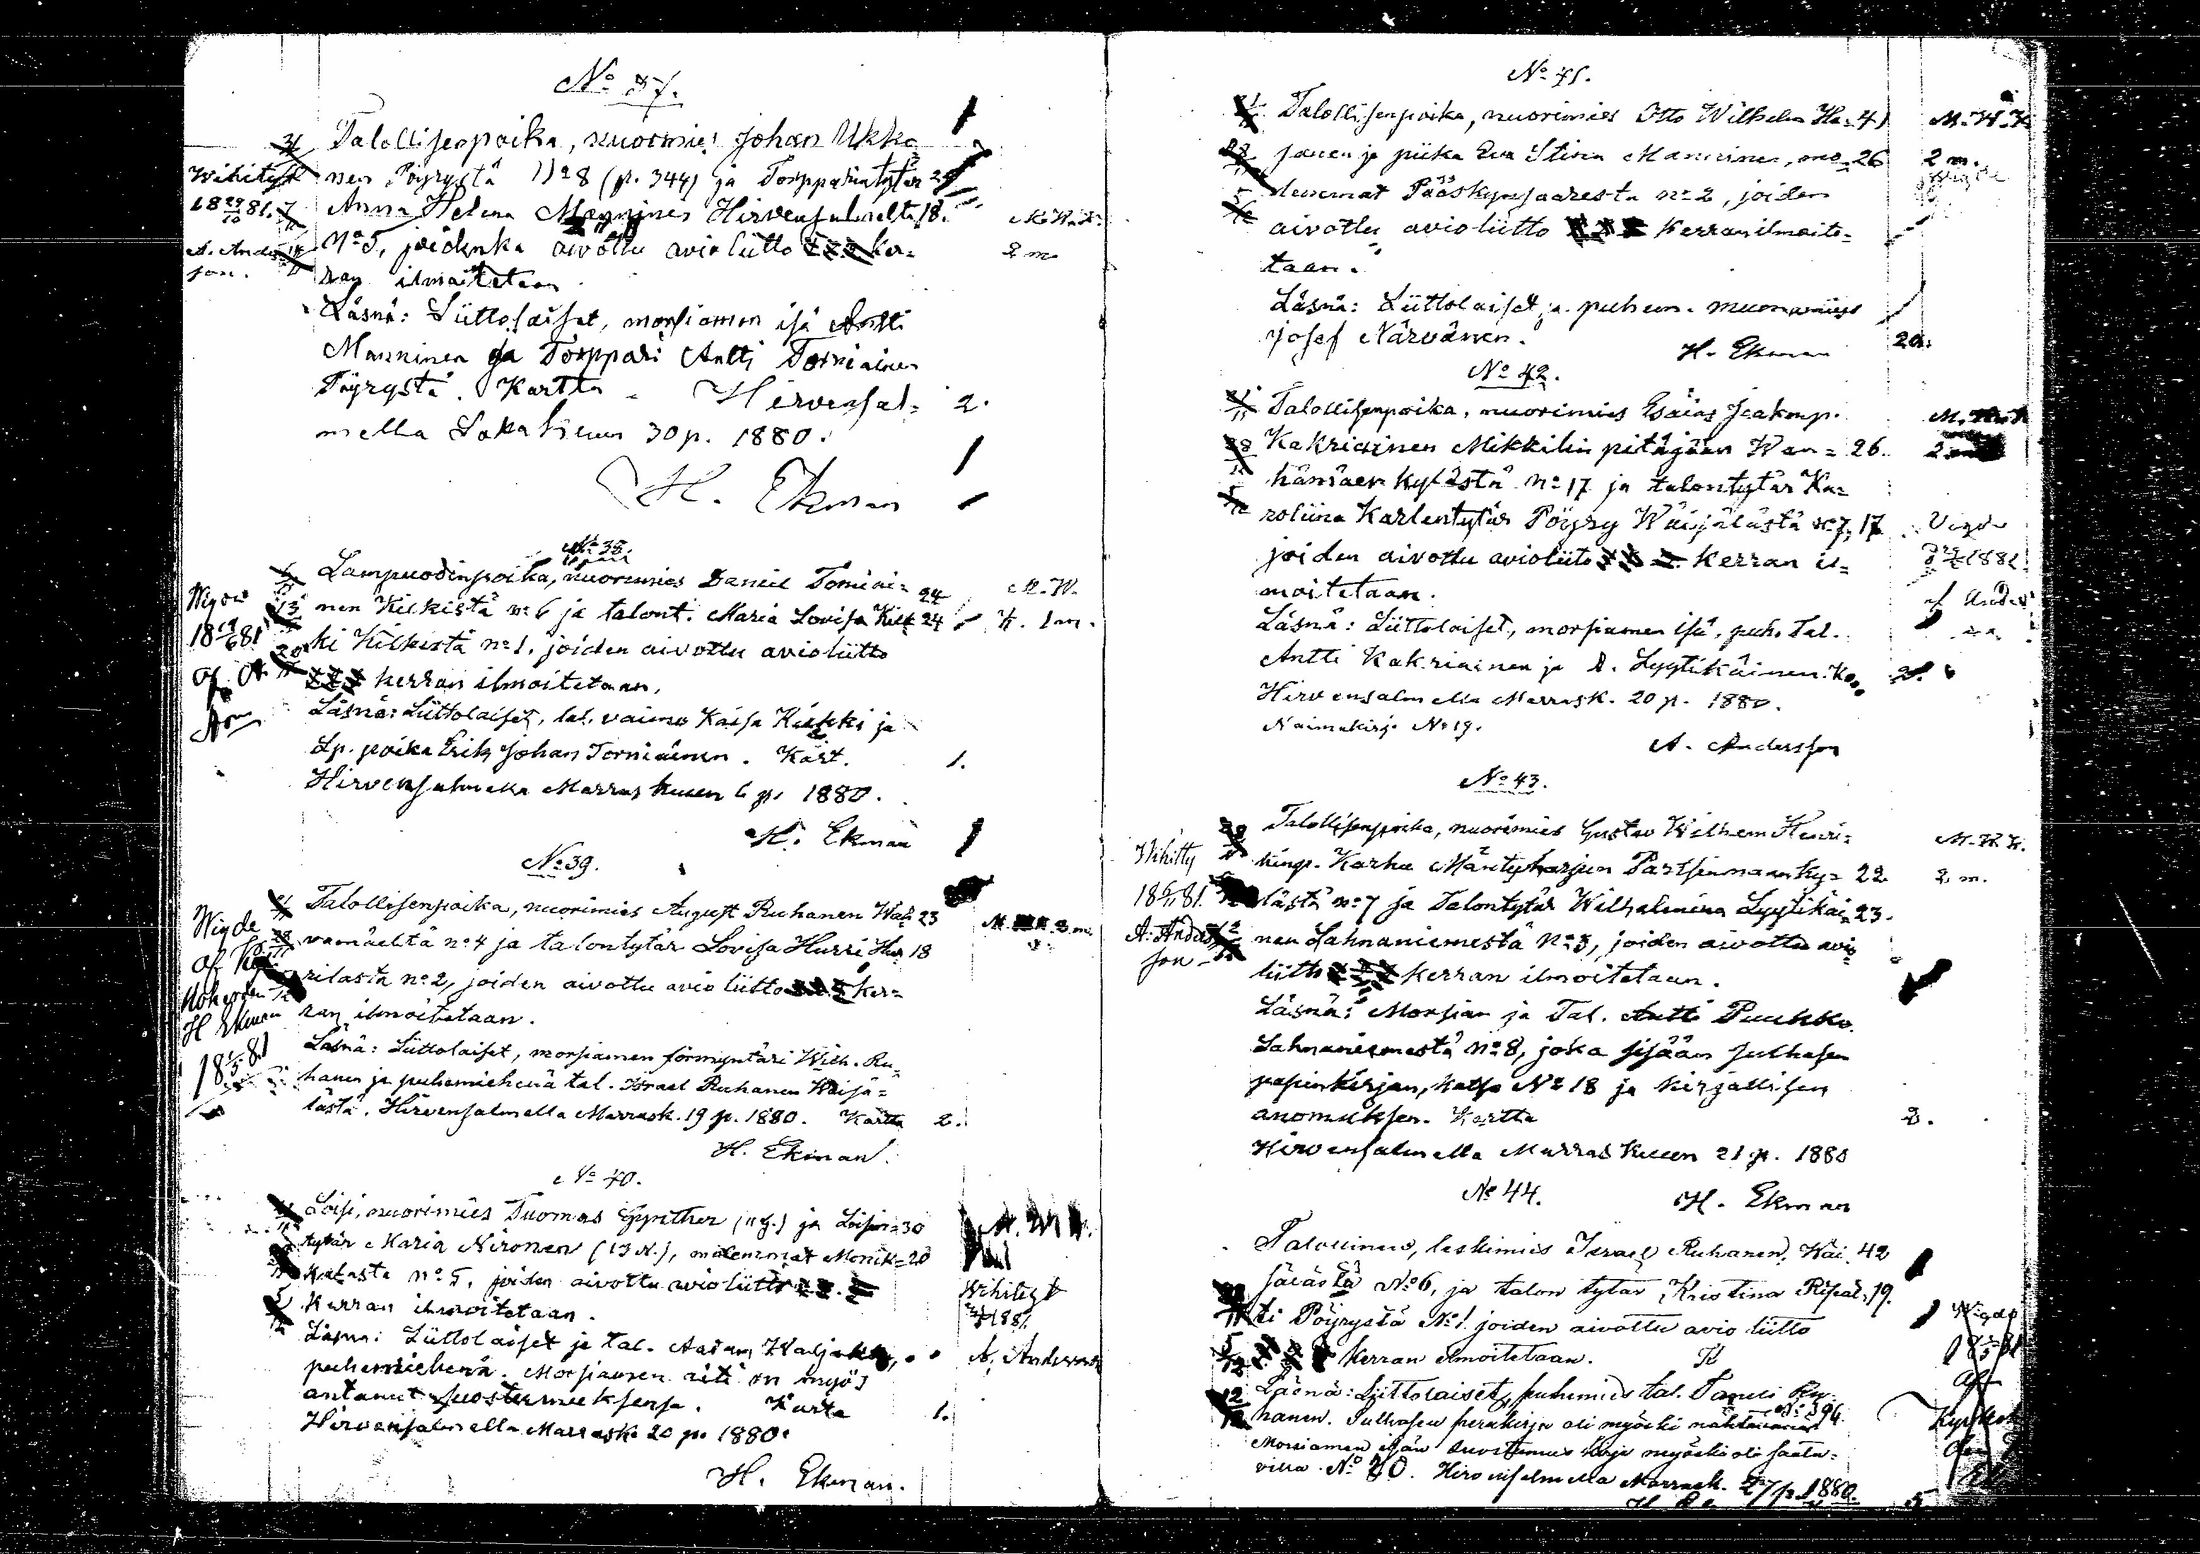 No 37.
Talollisenpoika, nuorimies Johan Ukko=
nen Pöyrystä No 8 (p. 344) ja Torpparintytär 24
Anna Helena Manninen Hirvensalmelta 18.
No 5, joidenka aivottu avioliitto ker=
ran ilmoitetaan
Läsnä: Liittolaiset, morsiamen isä Antti
Manninen ja Torppari Antti Torniainen
Pöyrystä. Kartta Hirvensal= 2.
mella Lokakuun 30 p. 1880.
H. Ekman
Wihityt
18 29/10 81.
A. Anders
son.
2 m
No 38.
Lampuodinpoika, nuorimies Daniel Torniai= 24
nen Kilkistä no 6 ja talont. Maria Lovisa Kilk= 24
ki Kilkistä no 1, joiden aivottu avioliitto
kerran ilmoitetaan.
Läsnä: Liittolaiset, tal. vaimo Kaisa Kilkki ja
Lp. poika Erik Johan Torniainen. Kart. 1.
Hirvensalmella Marraskuun 6 p. 1880.
H. Ekman
M. W.
K. 1 m.
Wigde
18 19/6 81
af A
No 39.
Talollisenpoika, nuorimies August Ruhanen Wah= 23
vamäeltä no 4 ja talontytär Lovisa Hurri Hur 18
rilasta no 2, joiden aivottu avioliitto ker=
ran ilmoitetaan.
Läsnä: Liittolaiset, morsiamen förmyntäri Wilh. Ru=
hanen ja puhemiehenä tal. Israel Ruhanen Waisä=
lästä. Hirvensalmella Marrask. 19 p. 1880. Kartta 2.
H. Ekman
Wigde
af
H Ekman
No 40.
Loisi, nuorimies Tuomas ja Loisin= 30
tytär Maria Nironen (13 N.), molemmat Monik= 20
kalasta no 5, joiden aivottu avioliitto
kerran ilmoitetaan.
Läsnä: Liittolaiset ja tal. Aatam
puhemiehenä. Morsiamen äiti on myös
antanut suostumuksensa. Karta 1.
Hirvensalmella Marrask. 20 p. 1880.
H. Ekman.
Wihityt
A. Andersson
No 41.
Talollisenpoika, nuorimies Otto Wilhelm Ha= 41
sanen ja piika Eva Stina Manninen, mo= 26
lemmat Pääskynsaaresta no 2, joiden
aivottu avioliitto kerran ilmoite=
taan.
Läsnä: Liittolaiset ja puhem. muonamies
Josef Närvänen.
H. Ekman
M. W. K
2 m.
No 42.
Talollisenpoika, nuorimies Esaias Jaakonp.
Kakriainen Mikkelin pitäjään Wan= 26.
hämäen kylästä no 17 ja talontytär Ka=
roliina Karlentytär Pöyry Wäisälästä no 7, 17
joiden aivottu avioliito kerran il=
moitetaan.
Läsnä: Liittolaiset, morsiamen isä, puh. Tal.
Antti Kakriainen ja A. Lyytikäinen. 2.
Hirvensalmella Marrask. 20 p. 1880.
Naimakirj. No 19.
A. Andersson
2 m
Vigde
1881
af Anders
No 43.
Talollisenpoika, nuorimies Gustav Wilhem Henri=
kinp. Karhu Mäntyharjun Partsinmaan ky= 22
lästä no 7 ja Talontytär Wilhelmina Lyytikäi= 23.
nen Lahnaniemestä No 8, joiden aivottu avio
liitto kerran ilmoitetaan.
Läsnä: Morsian ja Tal. Antti Puukko
Lahnaniemestä No 8, joka sisään sulhasen
papinkirjan, katso No 18 ja kirjallisen
anomuksen. Kartta 2.
Hirvensalmella Marraskuun 21 p. 1880
H. Ekman
M. W. K.
2 m.
Wihitty
A. Anders
son
No 44.
Talollinen, leskimies Israel Ruhanen, Wäi 42
sälästä No 6, ja talon tytar Kristina Ripat= 19.
ti Pöyrystä No 1. joiden aivottu avio liitto
kerran ilmoitetaan.
Läsnä: Liittolaiset, puhemies tal. Taneli Ru=
hanen. Sulhasen perukirja oli myöski nähtävänä
Morsiamen isän suostumus kirja myöski oli saata=
villa No 20. Hirvensalmella Marrask. 27 p. 1880.
Wigde